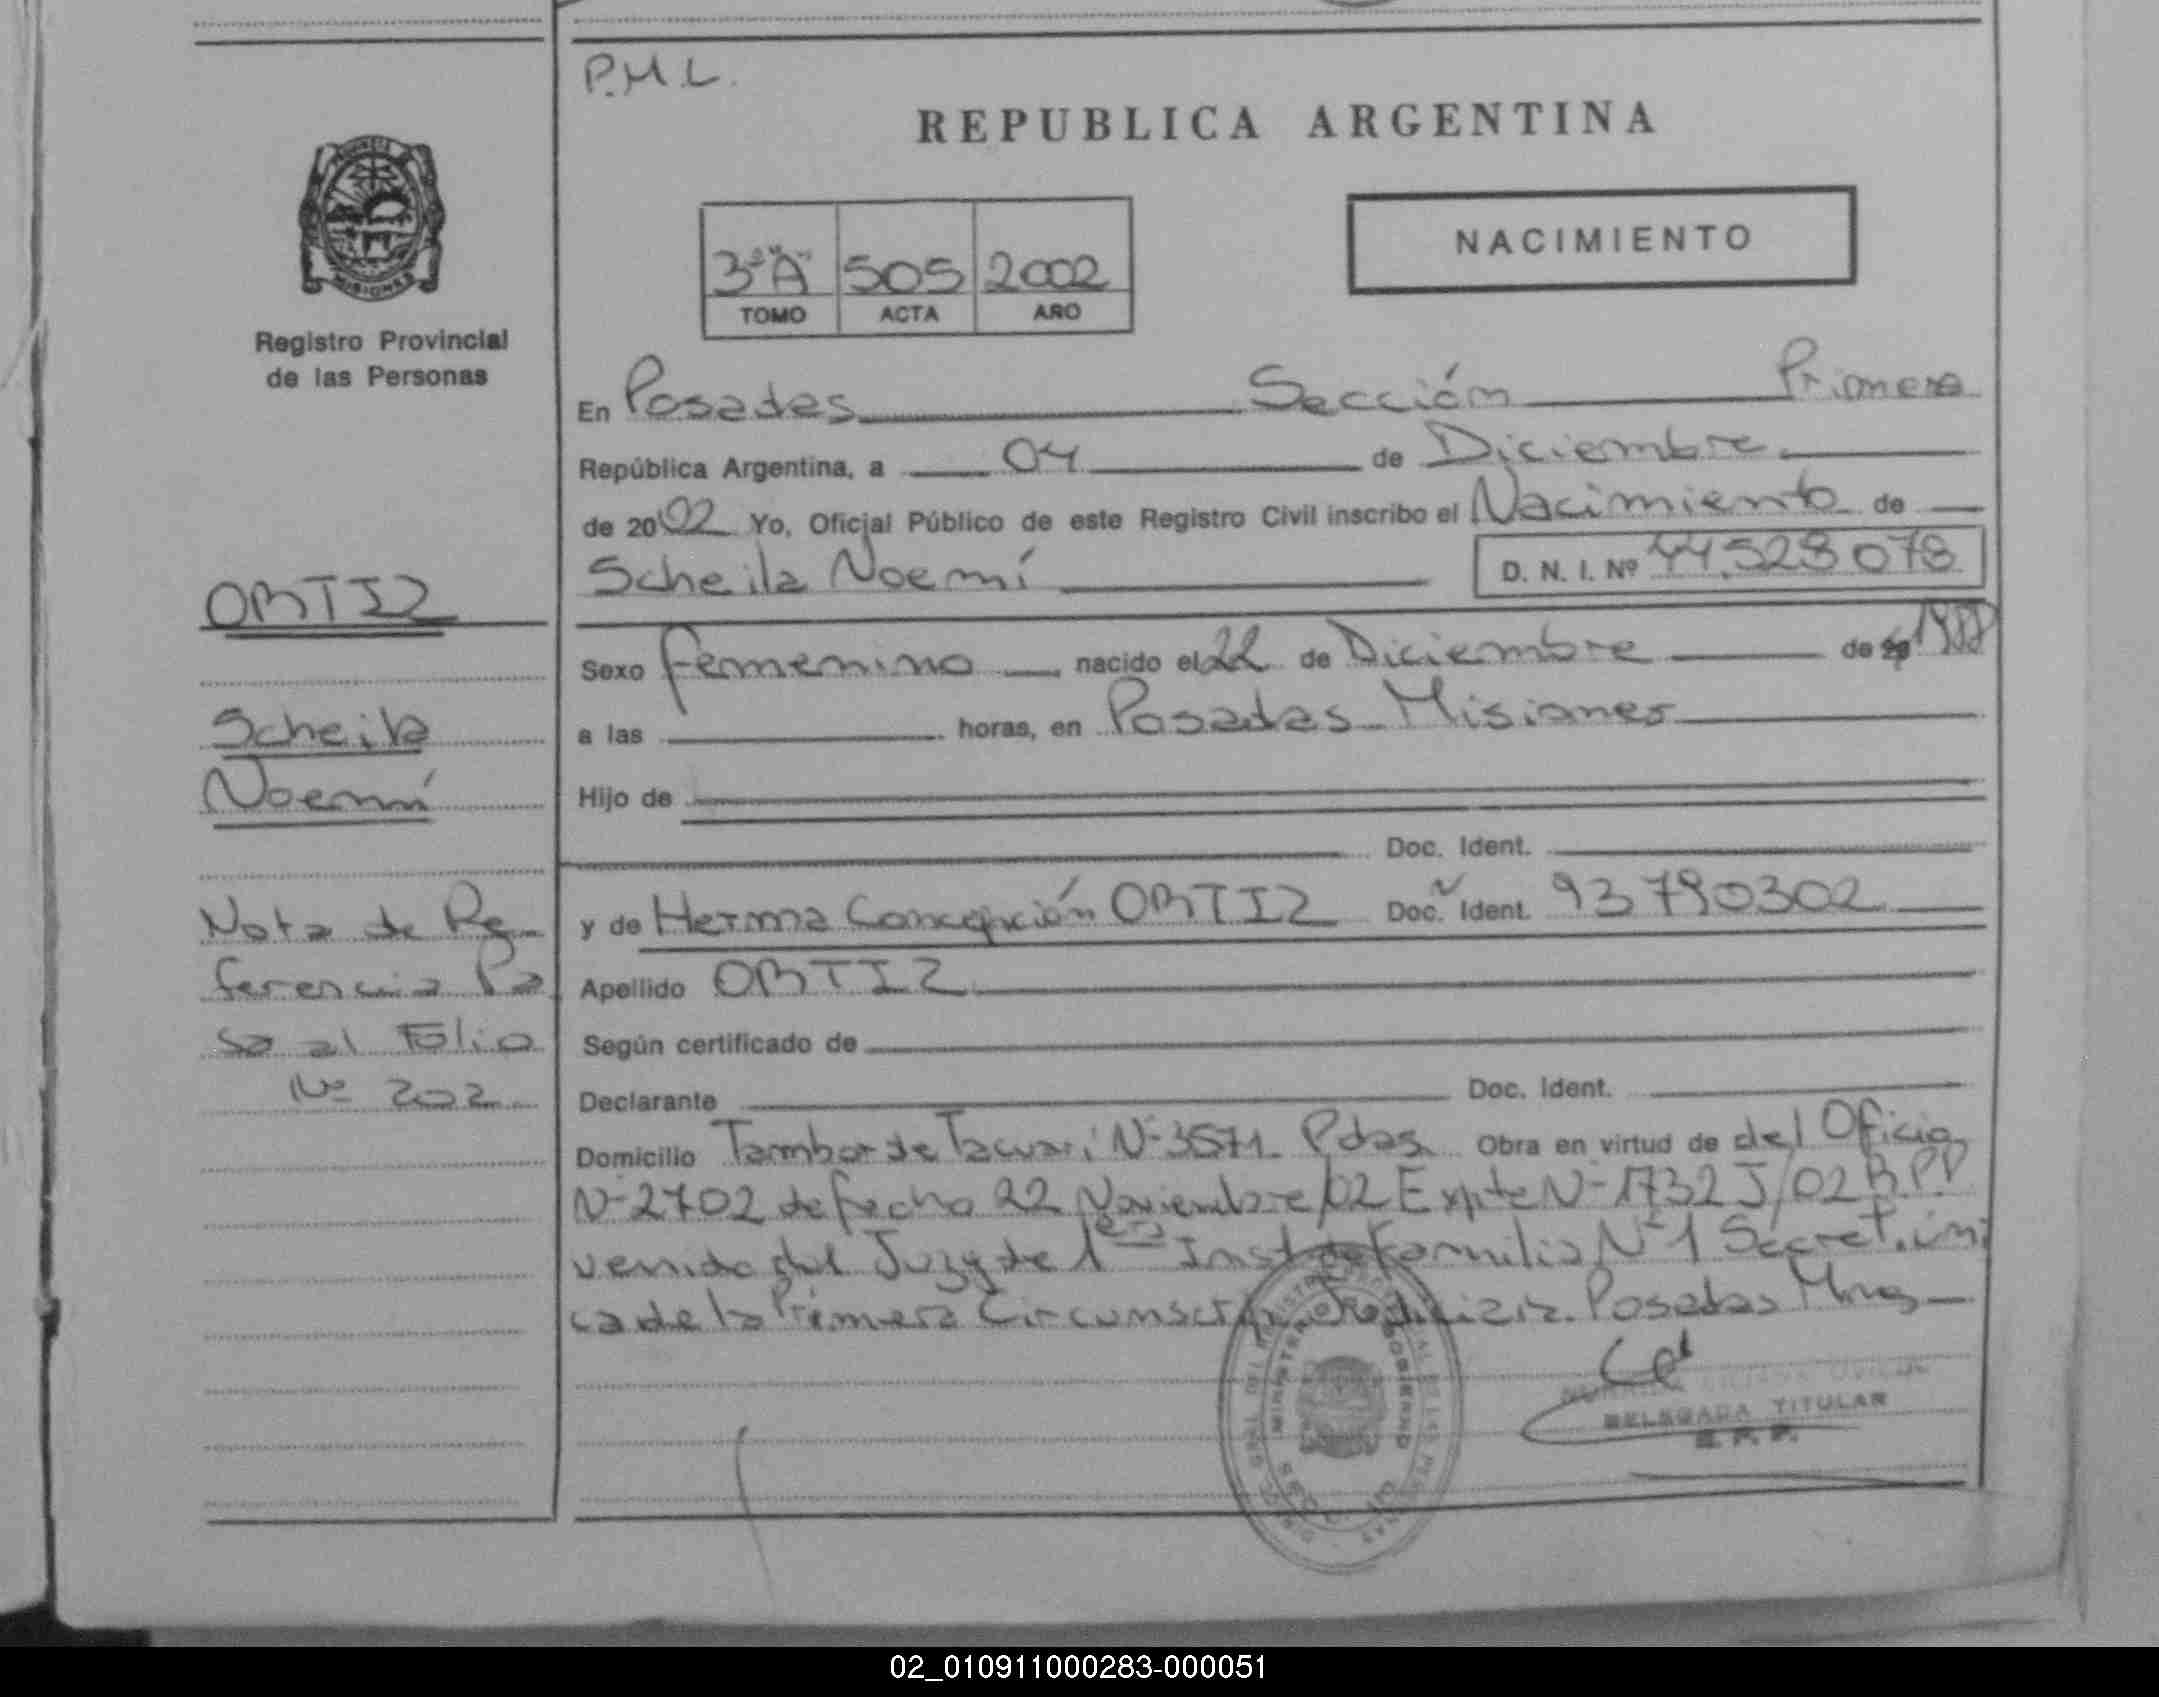 P.M.L.
REPUBLICA ARGENTINA
PROVINCIA
MISIONES
Registro Provincial
de las Personas
3º"A" 505 2002
TOMO ACTA AÑO
NACIMIENTO
En Posadas Sección Primera
República Argentina, a 04 de Diciembre
de 2002 Yo, Oficial Público de este Registro Civil inscribo el Nacimiento de
Scheila Noemí D. N. I. Nº 44.528078
Sexo femenino nacido el 22 de Diciembre de 1988
a las horas, en Posadas Misiones
Hijo de
Doc. Ident.
y de Herma Concepción ORTIZ Doc. Ident. 93790302
Apellido ORTIZ
Según certificado de
Declarante Doc. Ident.
Domicilio Tambor de Tacuarí Nº 3571 Pdas Obra en virtud de del Oficio
Nº 2702 de fecha 22 Noviembre/02 Expte Nº 1732 J/02 R.P.P
venido del Juzg de 1era Inst de Familia Nº 1 Secret. úni
ca de la Primera Circunscrip Judicial Posadas Mnes
ORTIZ
Scheila
Noemí
Nota de Re
ferencia Pa
sa al Folio
Nº 202
MINISTERIO GOBIERNO
DELEGADA TITULAR
R. P. P.
02_010911000283-000051